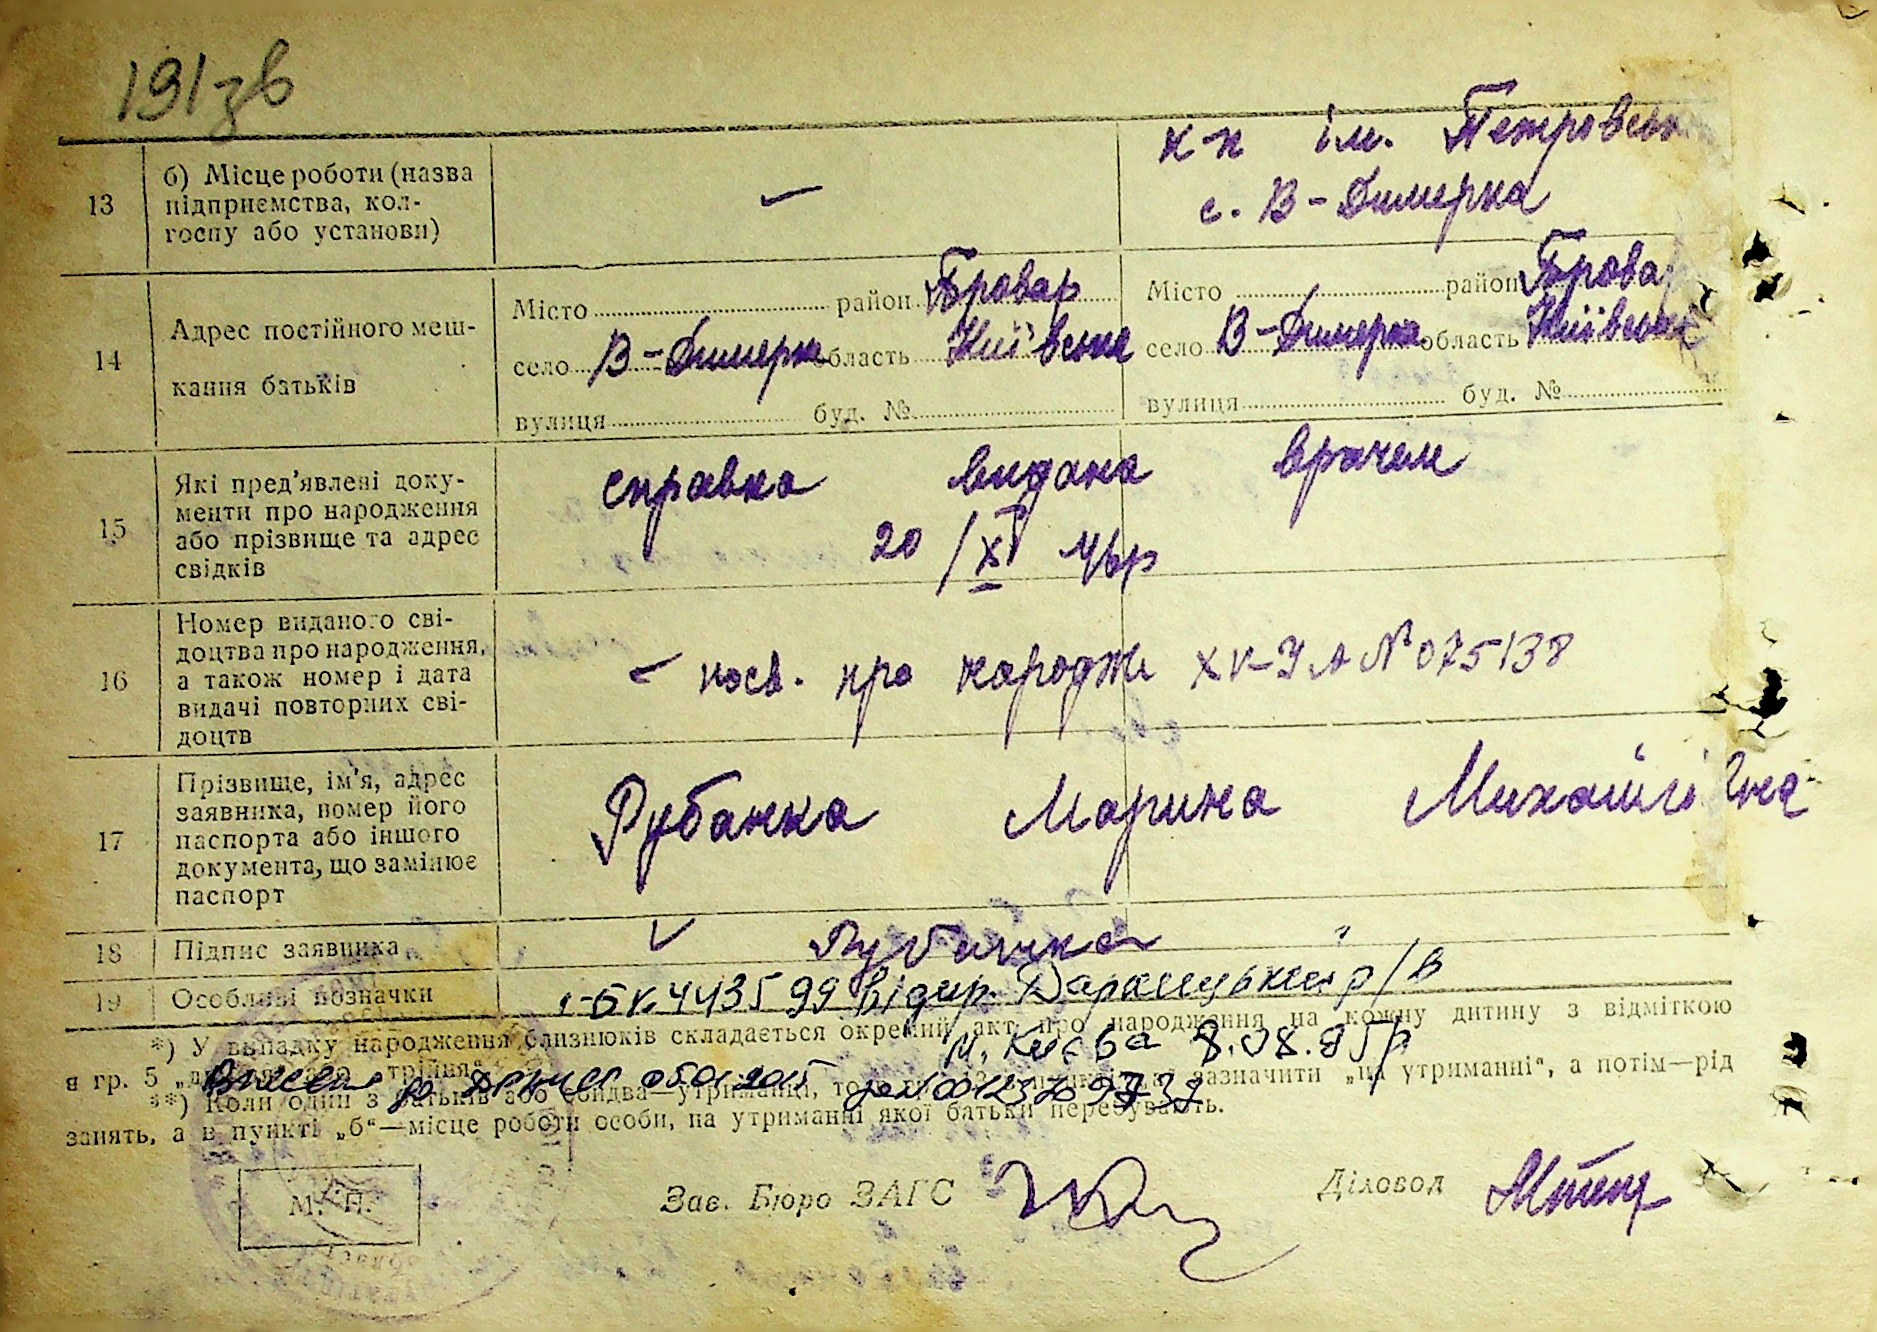 191 зв
к-п ім. Петровськ
с. В-Димерка
13
б) Місце роботи (назва
підприємства, кол-
госпу або установи)
14
Адрес постійного меш-
кання батьків
Місто район Бровар
село В-Димерка область Київська
вулиця буд. №
Місто район Бровар
село В-Димерка область Київська
вулиця буд. №
15
Які пред'явлені доку-
менти про народження
або прізвище та адрес
свідків
справка видана врачем
20/XI
16
Номер виданого сві-
доцтва про народження,
а також номер і дата
видачі повторних сві-
доцтв
– посв. про народж №075138
17
Прізвище, ім'я, адрес
заявника, номер його
паспорта або іншого
документа, що замінює
паспорт
Рубанка Марина Михайлівна
18
Підпис заявника
Рубанка
19
Особливі позначки
443599 відпр. р/в
м. Києва 8.08.85р
*) У випадку народження близнюків складається окремий акт про народження на кожну дитину з відміткою
в гр. 5
**) Коли один з батьків або обидва—утриманці, то зазначити „на утриманні“, а потім—рід
занять, а в пункті „б“—місце роботи особи, на утриманні якої батьки перебувають.
М. П.
Зав. Бюро ЗАГС
Діловод